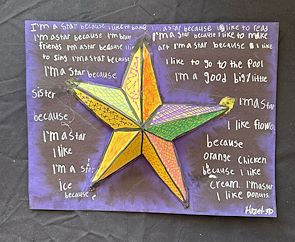 I'm a star because I like to read
friends I'm a star because I like
art I'm a star because I like
to sing I'm a star because
I like to go to the Pool
I'm a star because
I'm a good big/little
sister
I'm a star
because
I like flowers
I'm a star
because
I like
orange chicken
I'm a star
because I like
ice
cream. I'm a star
because
I like Donuts.
Hazel-3D